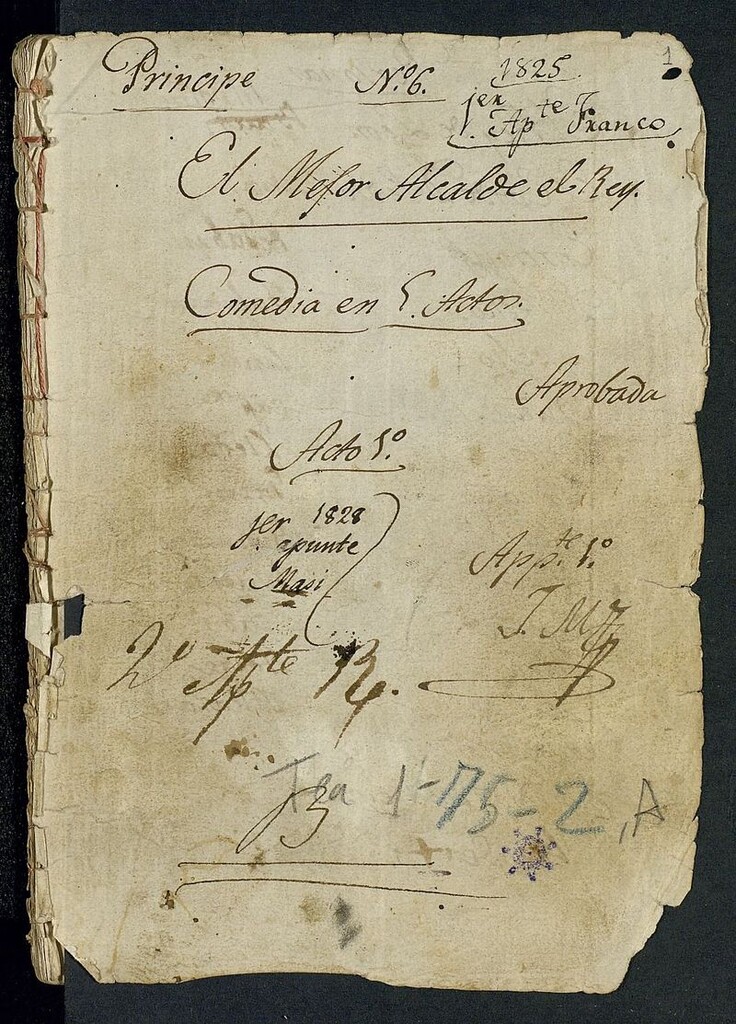 1
Principe Nº6. 1825
1er. Apte Franco
El Mejor Alcalde el Rey.
Comedia en 5. Actos.
Aprobada
Acto 1º.
1er 1828
apunte
Masi
Appte. 1º
2º Apte
Tea 1-75-2, A